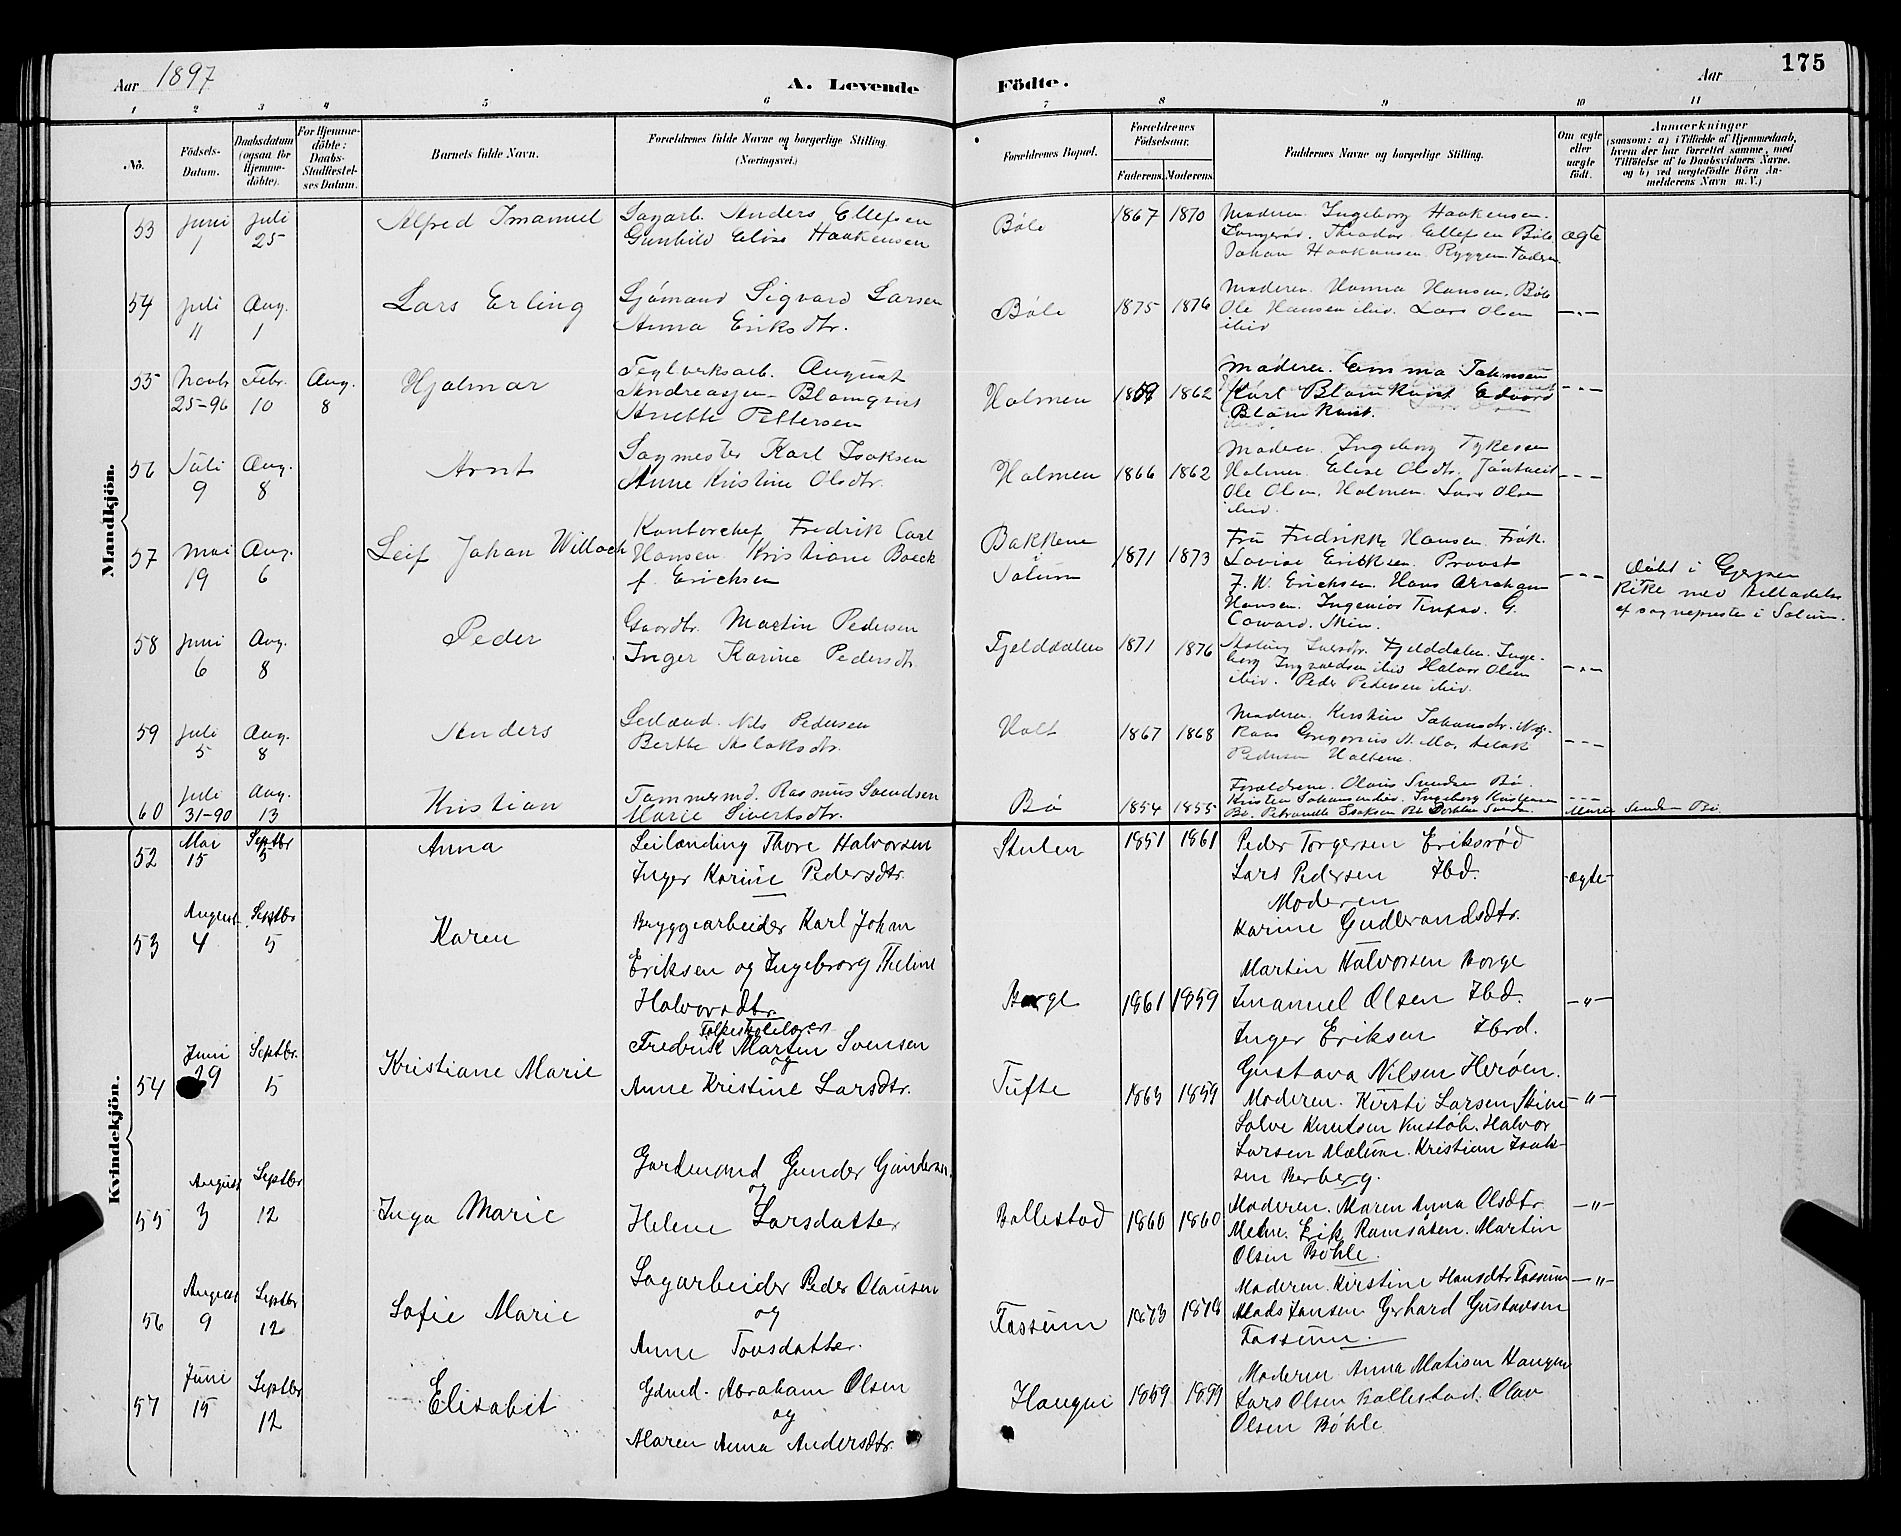 Aar 1897
A. Levende
Födte.
Aar
175
1 2 3 4 5 6 7 8 9 10 11
No.
Födsels-
Datum.
Daabsdatum
(ogsaa for
Hjemme-
döbte).
For Hjemme-
döbte:
Daabs-
Stadfæstel-
ses Datum.
Barnets fulde Navn.
Forældrenes fulde Navne og borgerlige Stilling.
(Næringsvei.)
Forældrenes Bopæl.
Forældrenes
Födselsaar.
Faderens. Moderens.
Faddernes Navne og borgerlige Stilling.
Om ægte
eller
uægte
født.
Anmærkninger
(saasom: a) i Tilfælde af Hjemmedaab,
hvem der har forrettet samme, med
Tilföielse af to Daabsvidners Navne.
og b) ved uægtefödte Börn An-
melderens Navn m. V.)
Mandkjön.
53 Juni 1 Juli 25 Alfred Imanuel
Sagarb. Anders Ellefsen
Gunhild Elise Haakensen
Bøle 1867 1870
Moderen Ingeborg Haakensen.
Langerød. Theodor Ellefsen Bøle
Johan Haakensen Ryggen. Faderen
ægte
54 Juli 11 Aug. 1 Lars Erling
Sjömand Sigvard Larsen
Anna Eriksdtr.
Bøle 1875 1876
Moderen. Hanna Hansen. Bøle
Ole Hansen ibid. Lars Olsen
ibid
55 Novb. 25-96 Febr. 10 Aug. 8 Hjalmar
Teglverksarb. August
Andreassen-Blomqvist
Anette Pettersen
Holmen 1862
Moderen. Emma Johansen
Karl Blomkvist Edvard
Blomkvist.
56 Juli 9 Aug. 8 Arnt
Sagmester Karl Isaksen
Anne Kristine Olsdtr.
Holmen 1866 1862
Moderen. Ingeborg
Holmen. Elise Olsdtr.
Ole Olsen. Holmen. Lars Olsen
ibid.
57 Mai 19 Aug. 6 Leif Johan Willoch
Kontorchef Fredrik Carl
Hansen. Kristiane Boeck
f. Erichsen
Bakkene
Solum
1871 1873
Fru Fredrikke Hansen. Frøk.
Lovise Ericksen. Provst
J. W. Erichsen. Hans Abraham
Hansen. Ingeniør G.
Coward.
Døbt i Gjerpen
Kirke med tilladelse
af sognepresten i Solum.
58 Juni 6 Aug. 8 Peder
Gaardbr. Martin Pedersen
Inger Karine Pedersdtr
Fjelddalen 1871 1876
Fjelddalen. Inge-
borg Ingvaldsen ibid Halvor Olsen
ibid. Peder Pedersen ibid.
59 Juli 5 Aug. 8 Anders
Leilænd. Nils Pedersen
Berthe Aslaksdtr.
Holt 1867 1868
Moderen. Kirstine Johansdtr.
Gregorius Aslak
Pedersen
60 Juli 31-90 Aug. 13 Kristian
Tømmermd. Rasmus Svendsen
Marie Sivertsdtr.
Bø 1854 1855
Forældrene. Olaus Svendsen Bø.
Kristen Johansen ibid. Ingeborg Kristensen
Bø. Petronelle Isaksen Bø
Marie Svendsen Bø.
Kvindekjön.
52 Mai 15 Septbr 5 Anna
Leilænding Thore Halvorsen
Inger Karine Pedersdtr.
Stulen 1851 1861
Peder Torgersen Eriksrød
Lars Pedersen Ibd.
Moderen
Karine Gudbrandsdtr.
ægte
53 August 4 Septbr 5 Karen
Bryggearbeider Karl Johan
Eriksen og Ingeborg Theline
Halvorsdtr.
Borge 1861 1859
Martin Halvorsen Borge
Imanuel Olsen Ibd.
Inger Eriksen Ibid.
Gustava Nilsen Herøen.
54 Juni 29 Septbr. 5 Kristiane Marie
Folkeskolelærer
Fredrik Marten Svensen
og
Anne Kristine Larsdtr.
Tufte 1863 1859
Moderen. Kirsti Larsen
Solve Knutsen Halvor
Larsen Mælum. Kristian Isak-
sen Berberg.
55 August 3 Septbr 12 Inga Marie
Gardmand Gunder Gundersen
og
Helene Larsdatter
Ballestad 1860 1860
Moderen. Maren Anna Olsdtr
Erik Ramsaasen. Martin
Olsen Bøhle.
56 August 9 Septbr 12 Sofie Marie
Sagarbeider Peder Olausen
og
Anne Tovsdatter.
Fossum 1873 1878
Moderen. Kirstine Hansdtr Fossum
Mads Jansen Gerhard Gustavsen
Fossum
57 Juni 15 Septbr 12 Elisabet
Gdmd. Abraham Olsen
og
Maren Anna Andersdtr.
Haugen 1859 1859
Moderen Anna Matisen Haugen
Lars Olsen Ballestad. Olav
Olsen Bøhle